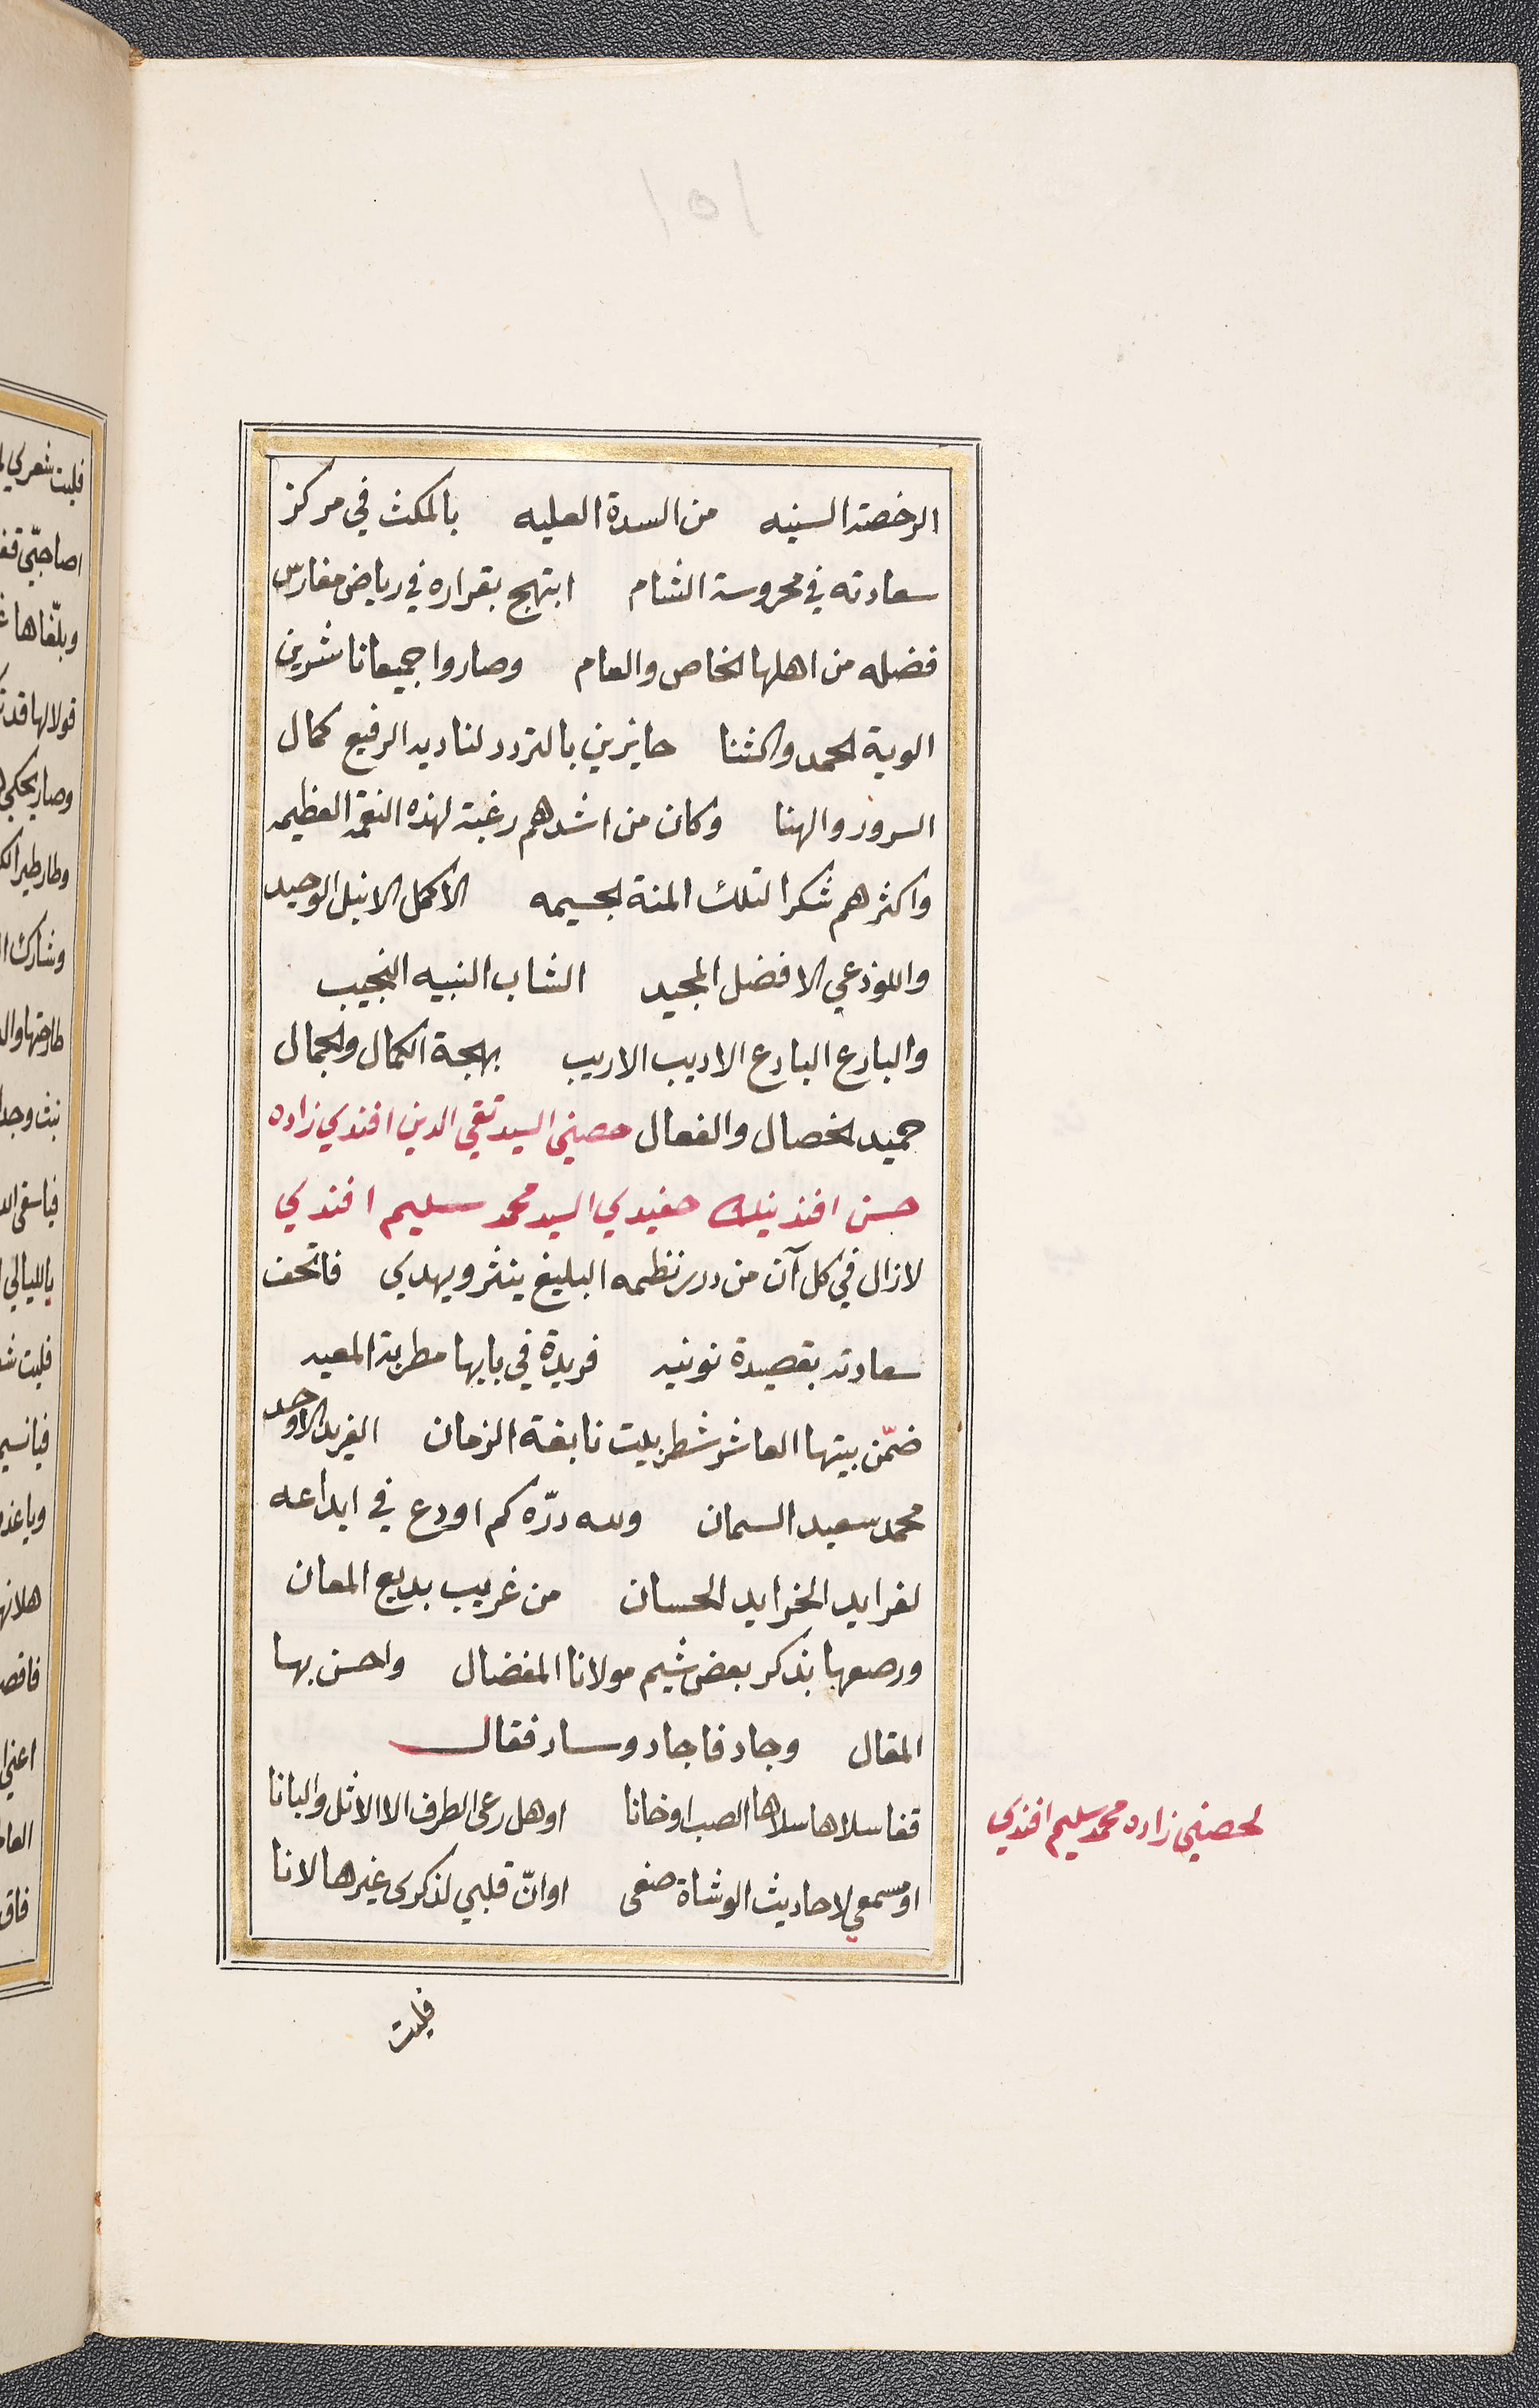 ١٥١
الرخصة السنيه من السدة العليه بالمكث في مركز
سعادته في محروسة الشام ابتهج بقراره في رياض مغارس
فضله من اهلها الخاص والعام وصاروا جميعا ناشرين
الوية الحمد والثنا حايزين بالتردد لناديه الرفيع كمال
السرور والهنا وكان من اشدهم رغبة لهذه النعمة العظيمه
واكثرهم شكرا لتلك المنة الجسيمه الاكمل الانبل الوحيد
واللوذعي الافضل المجيد الشاب النبيه النجيب
والبارع البارع الاديب الاريب بهجة الكمال والجمال
حميد الخصال والفعال حصيني السيد تقي الدين افندي زاده
حسن افندينك حفيدي السيد محمد سليم افندي
لازال في كل آن من درر نظمه البليغ ينثر ويهدي فاتحف
سعادته بقصيدة نونيه فريدة في بابها مطربة المعيه
ضمّن بيتها العاشر شطر بيت نابغة الزمان الفريد الاوحد
محمد سعيد السمان ولله درّه كم اودع في ابداعه
لفرايد الخرايد الحسان من غريب بديع المعان
ورصعها بذكر بعض شيم مولانا المفضال واحسن بها
المقال وجاد فاجاد وساد فقال
قفا سلاها سلاها الصب اوخانا اوهل رعى الطرف الا الاثل والبانا
اومسمعي لاحاديث الوشاة صغى اوانّ قلبي لذكرى غيرها لانا
لحصيني زاده محمد سليم افندي
فليت